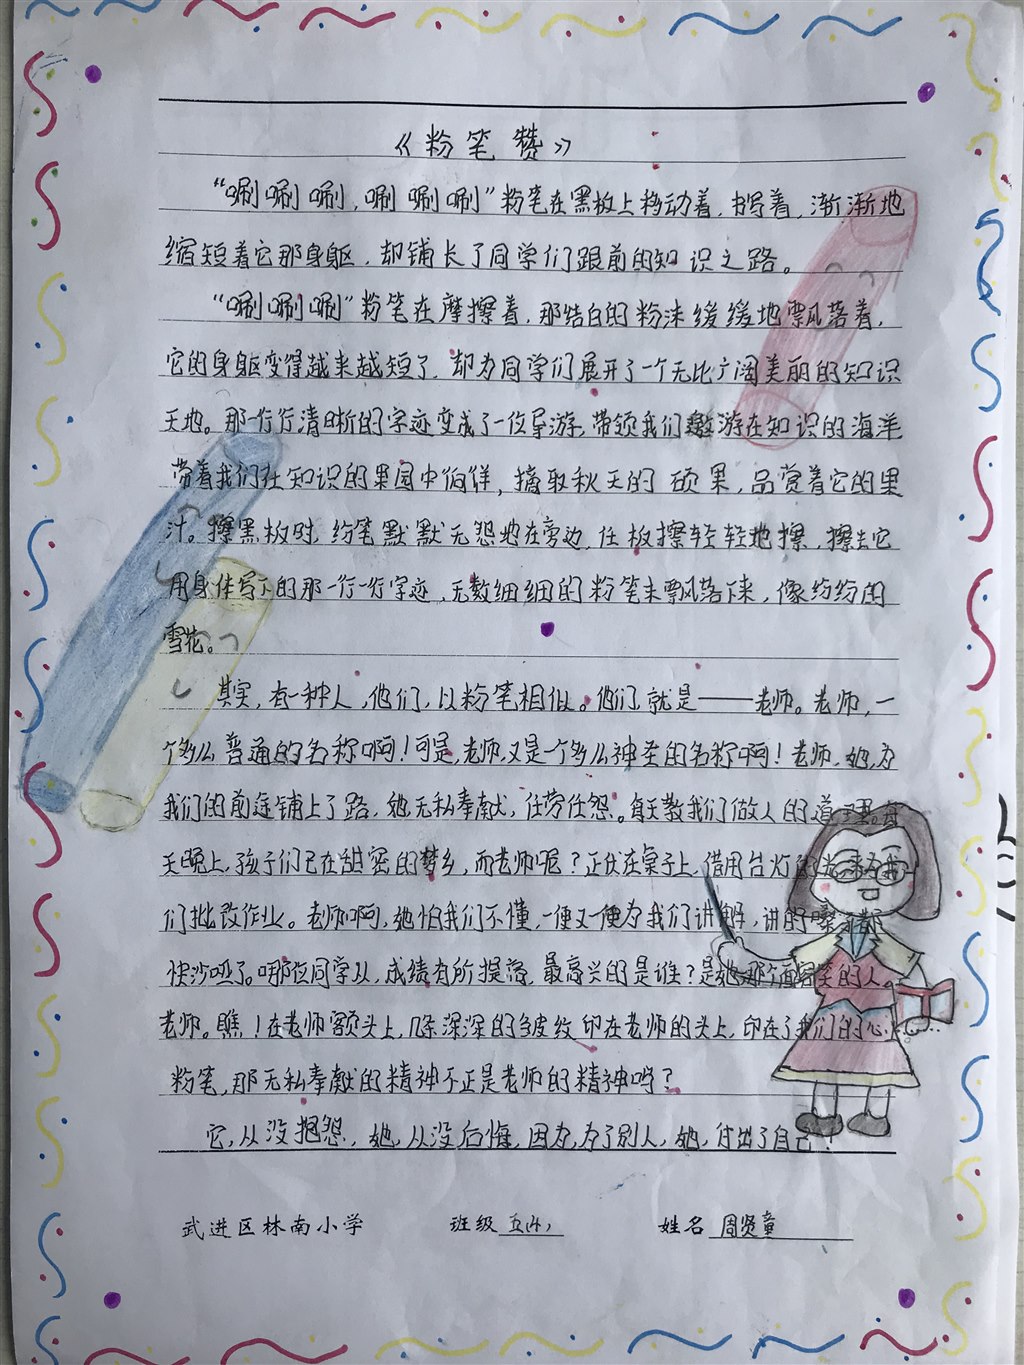 《粉笔赞》
“唰唰唰，唰唰唰”粉笔在黑板上移动着，书写着，渐渐地
缩短着它那身躯，却铺长了同学们跟前的知识之路。
“唰唰唰”粉笔在摩擦着，那洁白的粉沫缓缓地飘落着，
它的身躯变得越来越短了，却为同学们展开了一个无比广阔美丽的知识
天地。那一行行清晰的字迹变成了一位导游，带领我们遨游在知识的海洋
带着我们在知识的果园中徜徉，摘取秋天的硕果，品赏着它的果
汁。擦黑板时，粉笔默默无怨地在旁边，任板擦轻轻地擦，擦去它
用身体写下的那一行一行字迹，无数细细的粉笔末飘落下来，像纷纷的
雪花。
其实，有一种人，他们，以粉笔相似。他们，就是——老师。老师，一
个多么普通的名称啊！可是，老师，又是一个多么神圣的名称啊！老师，她，为
我们的前途铺上了路，她无私奉献，任劳任怨。每天教我们做人的道理。每
天晚上，孩子们已在甜密的梦乡，而老师呢？正伏在桌子上，借用台灯的光来为我
们批改作业。老师啊，她怕我们不懂，一便又一便为我们讲解，讲的嗓子都
快沙哑了。哪位同学从，成绩有所提高，最高兴的是谁？是她那个面含笑的人。
老师。瞧！在老师额头上，几条深深的皱纹印在老师的头上，印在了我们的心
粉笔，那无私奉献的精神不正是老师的精神吗？
它，从没抱怨，她，从没后悔，因为，为了别人，她，付出了自己！
武进区林南小学 班级 五(4) 姓名 周贤童